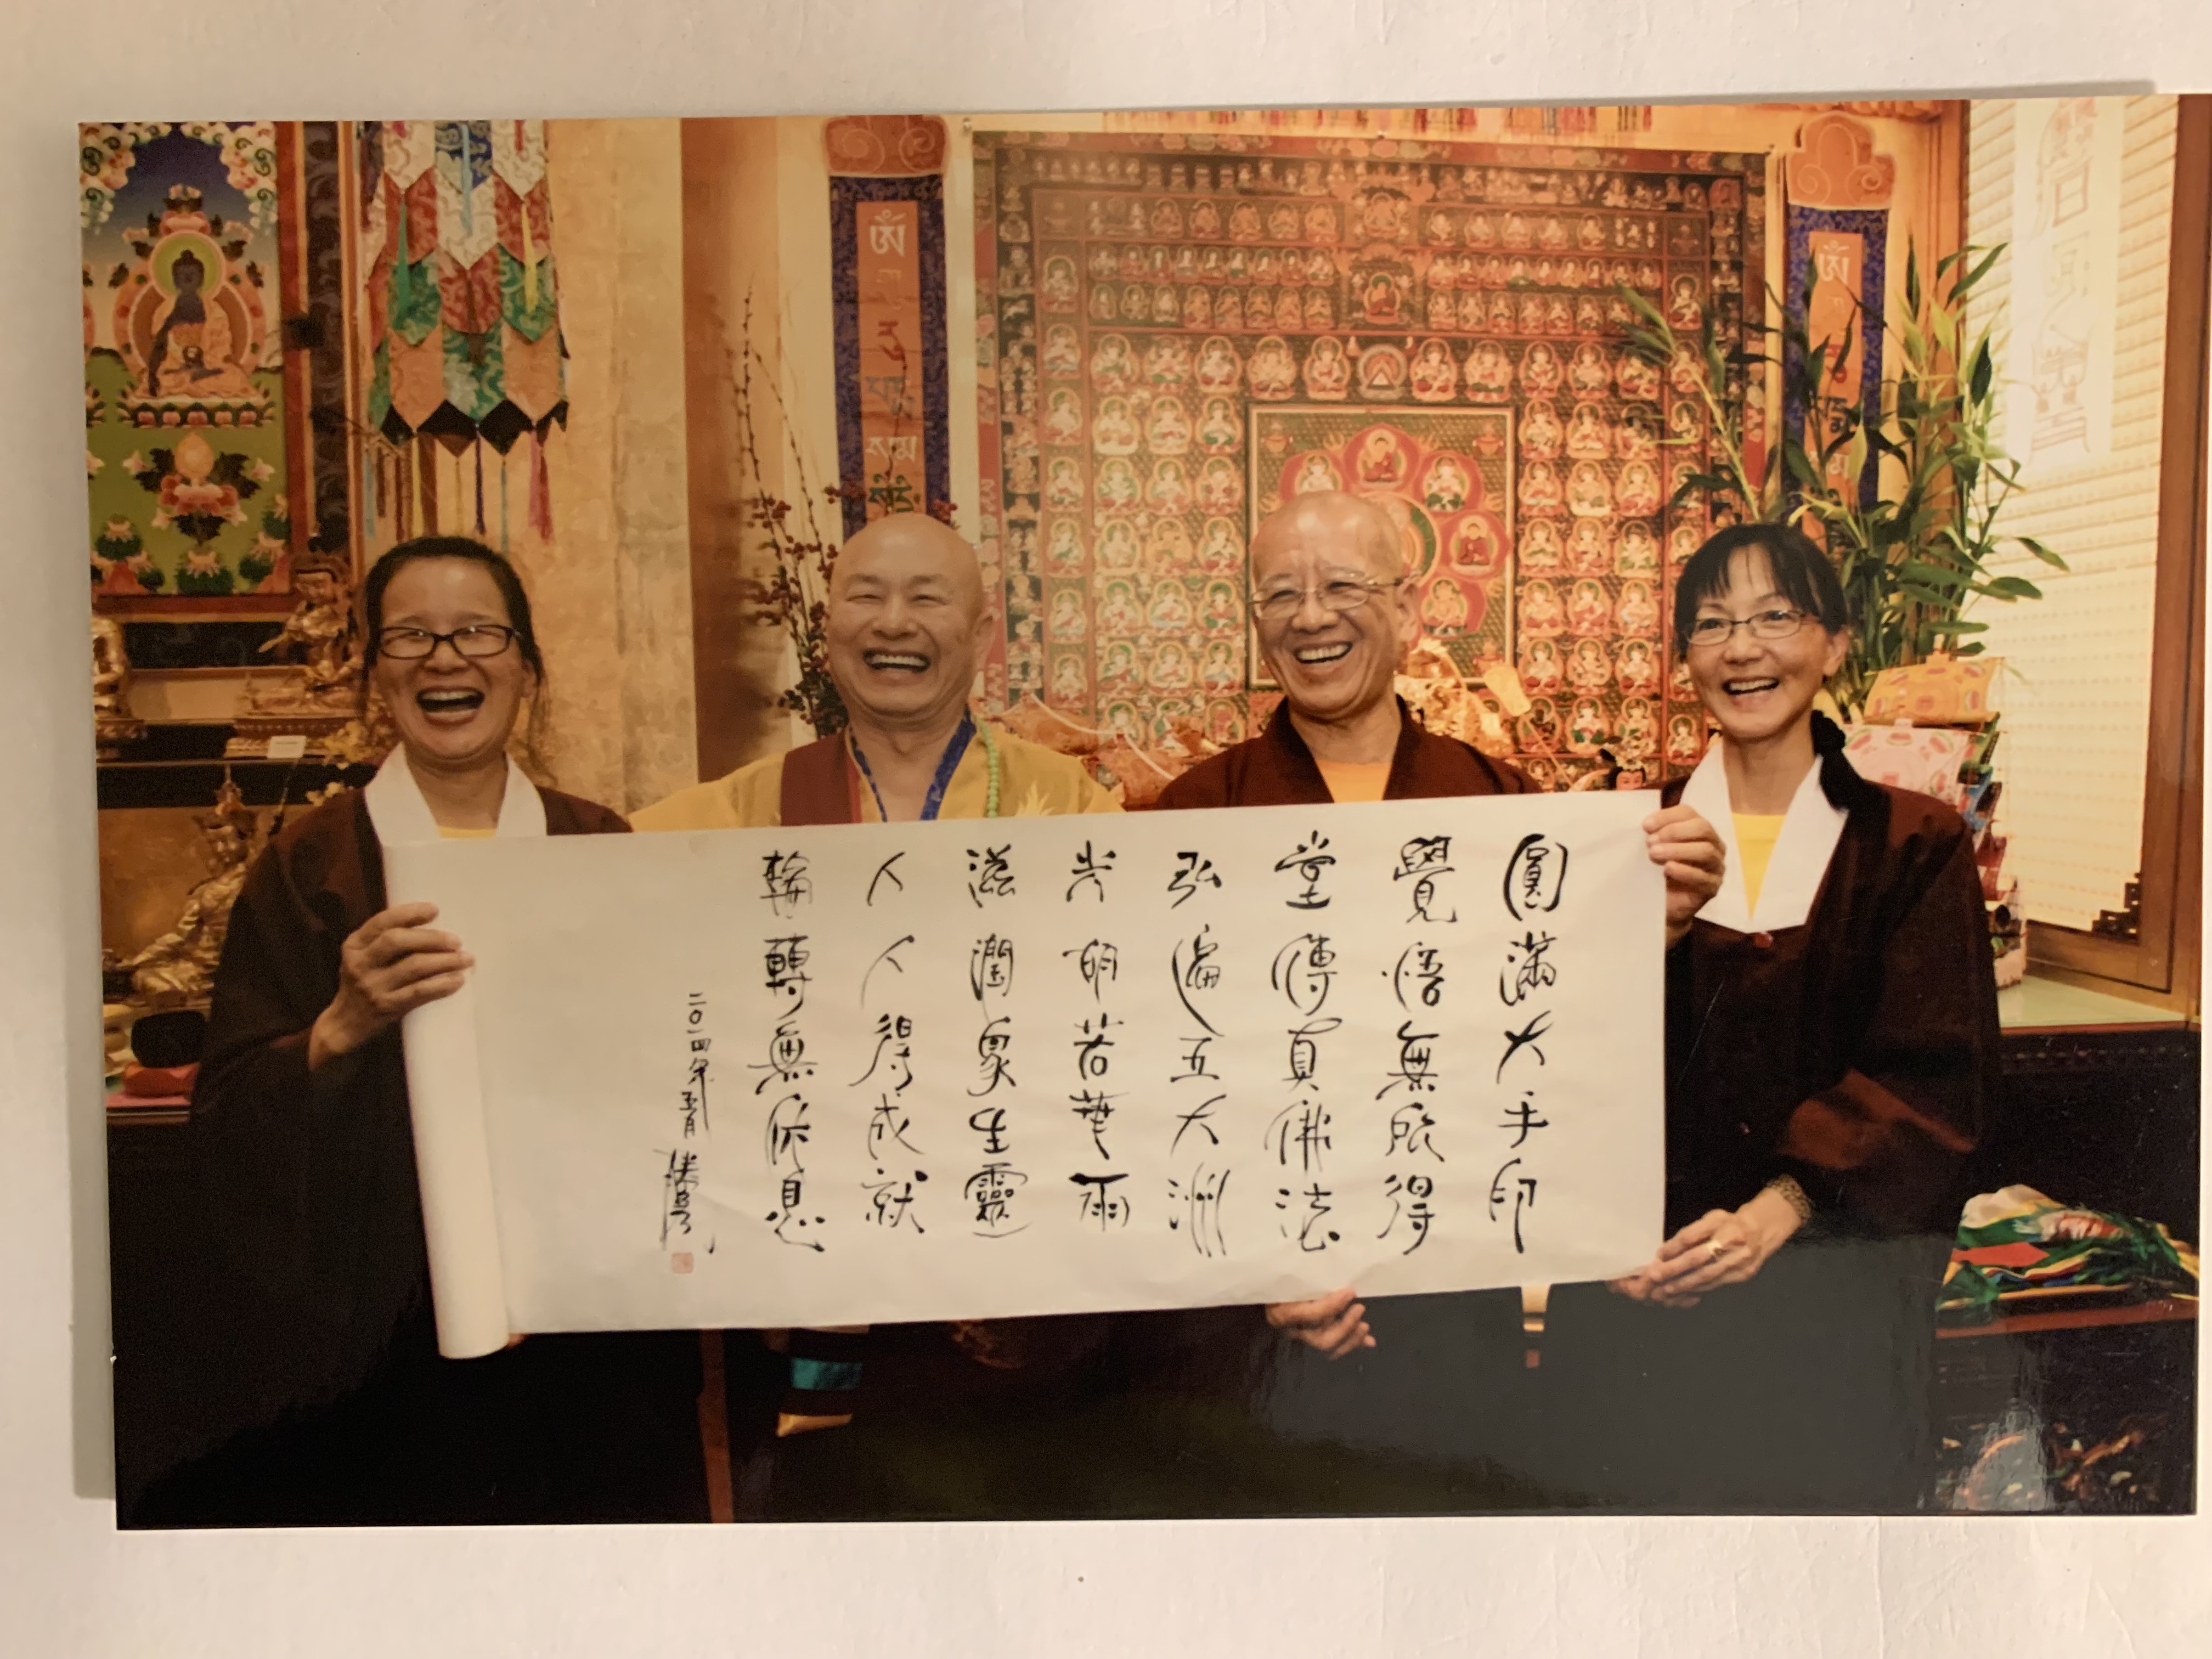 圓滿大手印
覺悟無所得
堂傳真佛法
弘遍五大洲
光明若華雨
滋潤眾生靈
人人得成就
輪轉無休息
二〇一四年
勝彥